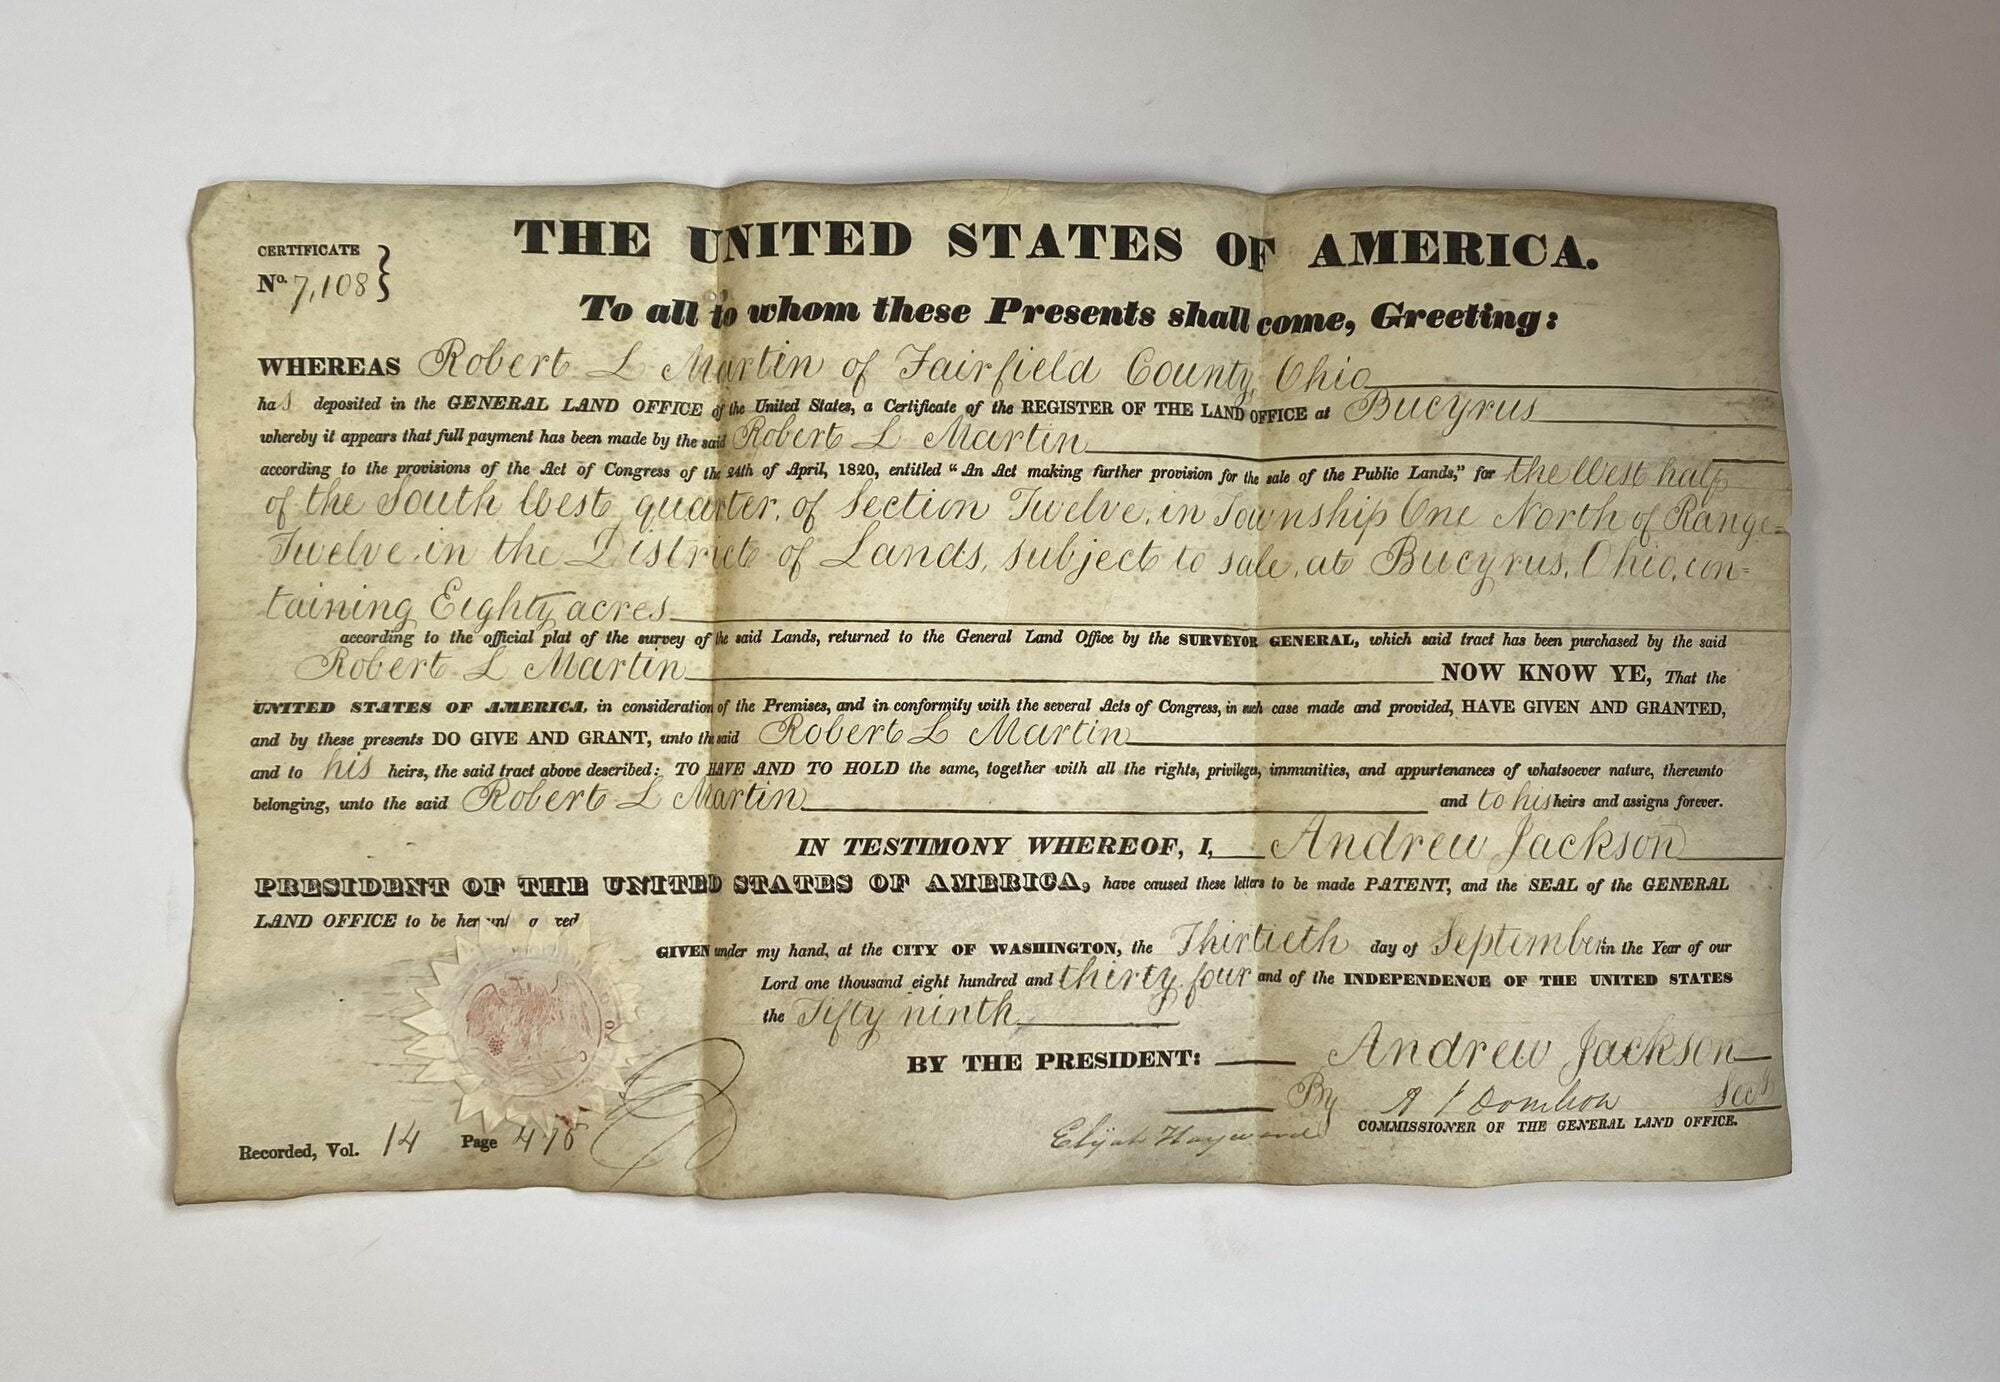 THE UNITED STATES OF AMERICA.
CERTIFICATE
No. 7,108
To all to whom these Presents shall come, Greeting:
WHEREAS Robert L Martin of Fairfield County, Ohio
has deposited in the GENERAL LAND OFFICE of the United States, a Certificate of the REGISTER OF THE LAND OFFICE at Bucyrus
whereby it appears that full payment has been made by the said Robert L Martin
according to the provisions of the Act of Congress of the 24th of April, 1820, entitled "An Act making further provision for the sale of the Public Lands," for the West half
of the South West quarter, of Section Twelve, in Township One North of Range
Twelve, in the District of Lands, subject to sale, at Bucyrus, Ohio, con=
taining Eighty acres
according to the official plat of the survey of the said Lands, returned to the General Land Office by the SURVEYOR GENERAL, which said tract has been purchased by the said
Robert L Martin NOW KNOW YE, That the
UNITED STATES OF AMERICA, in consideration of the Premises, and in conformity with the several Acts of Congress, in such case made and provided, HAVE GIVEN AND GRANTED,
and by these presents DO GIVE AND GRANT, unto the said Robert L Martin
and to his heirs, the said tract above described: TO HAVE AND TO HOLD the same, together with all the rights, privileges, immunities, and appurtenances of whatsoever nature, thereunto
belonging, unto the said Robert L Martin and to his heirs and assigns forever.
IN TESTIMONY WHEREOF, I, Andrew Jackson
PRESIDENT OF THE UNITED STATES OF AMERICA, have caused these letters to be made PATENT, and the SEAL of the GENERAL
LAND OFFICE to be
GIVEN under my hand, at the CITY OF WASHINGTON, the Thirtieth day of September in the Year of our
Lord one thousand eight hundred and thirty four and of the INDEPENDENCE OF THE UNITED STATES
the Fifty ninth
BY THE PRESIDENT: Andrew Jackson
By A J Donelson Secy
Elijah Hayward COMMISSIONER OF THE GENERAL LAND OFFICE.
Recorded, Vol. 14 Page 475